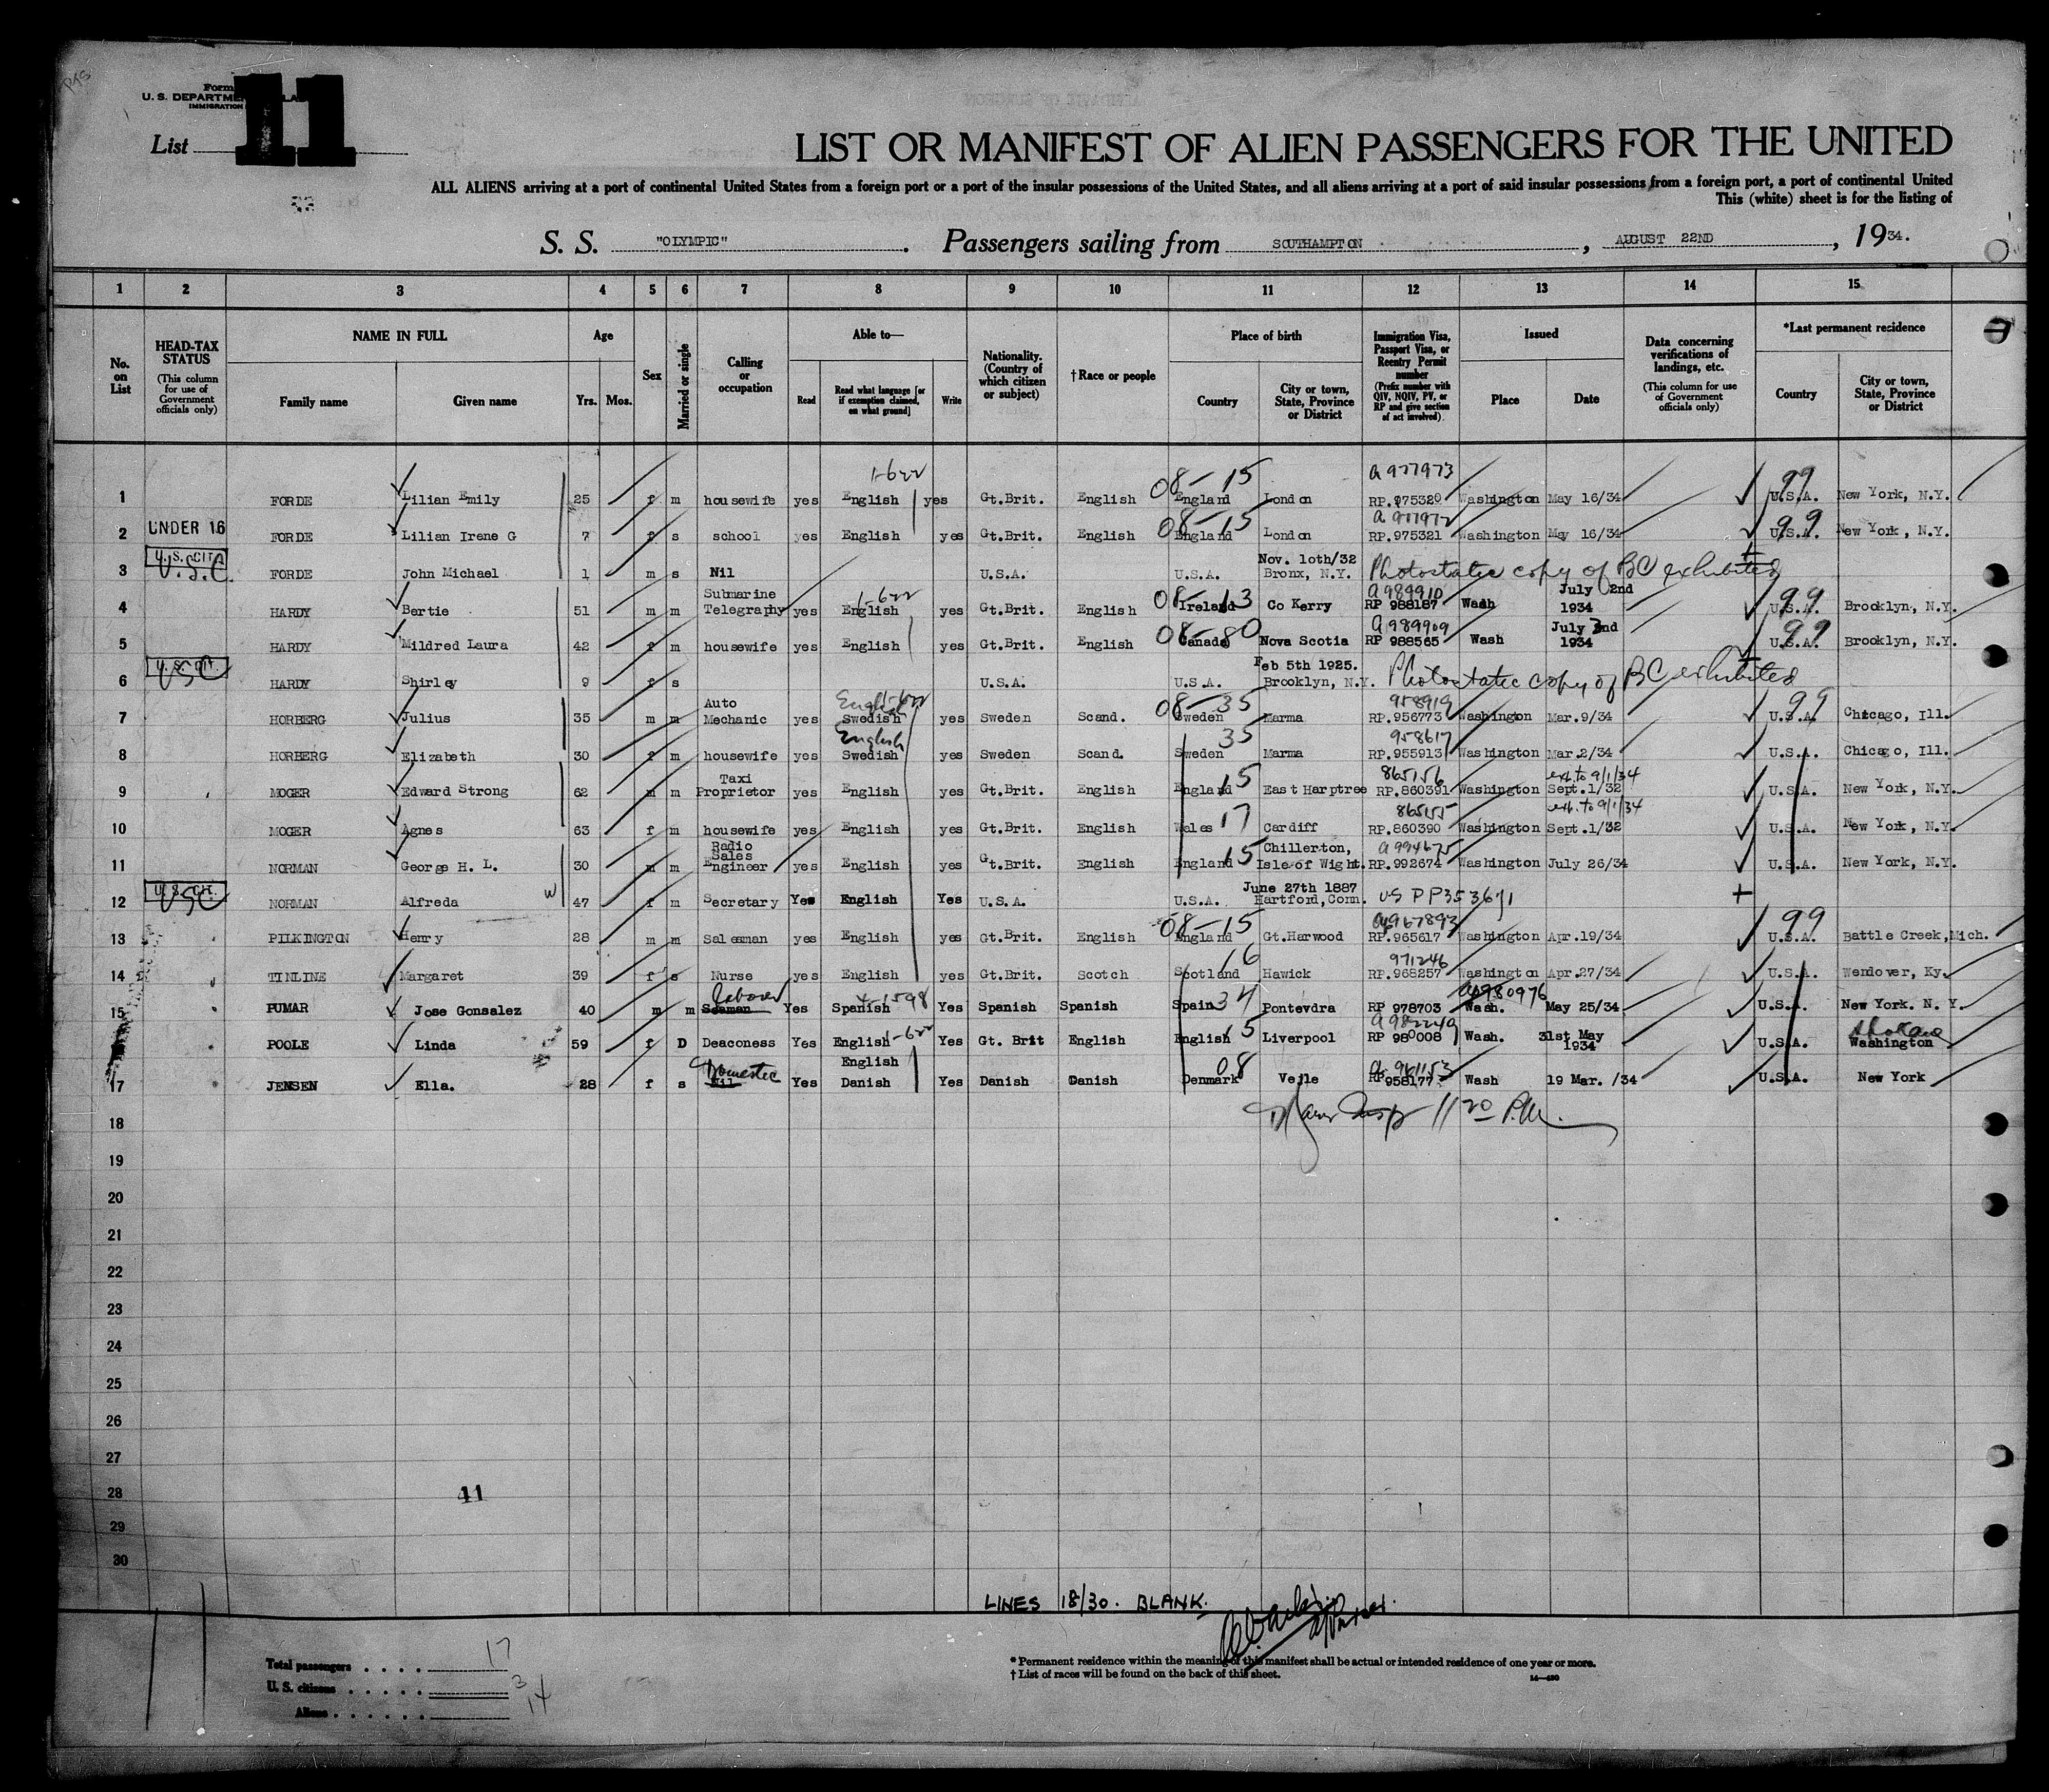 Form
U. S. DEPARTMENT
IMMIGRATION
List 11
LIST OR MANIFEST OF ALIEN PASSENGERS FOR THE UNITED
ALL ALIENS arriving at a port of continental United States from a foreign port or a port of the insular possessions of the United States, and all aliens arriving at a port of said insular possessions from a foreign port, a port of continental United
This (white) sheet is for the listing of
S. S. "OLYMPIC". Passengers sailing from SOUTHAMPTON, AUGUST 22ND, 1934.
1 2 3 4 5 6 7 8 9 10 11 12 13 14 15
No. on List
HEAD-TAX STATUS (This column for use of Government officials only)
NAME IN FULL Family name Given name
Age Yrs. Mos.
Sex
Married or single
Calling or occupation
Able to— Read Read what language [or if exemption claimed, on what ground] Write
Nationality. (Country of which citizen or subject)
†Race or people
Place of birth Country City or town, State, Province or District
Immigration Visa, Passport Visa, or Reentry Permit number (Prefix number with QIV, NQIV, PV, or RP and give section of act involved)
Issued Place Date
Data concerning verifications of landings, etc. (This column for use of Government officials only)
*Last permanent residence Country City or town, State, Province or District
1-622 08-15 a 977973 99
1 FORDE Lilian Emily 25 f m housewife yes English yes Gt.Brit. English England London RP.975320 Washington May 16/34 U.S.A. New York, N.Y.
UNDER 16 08-15 a 977972 99
2 FORDE Lilian Irene G 7 f s school yes English yes Gt.Brit. English England London RP.975321 Washington May 16/34 U.S.A. New York, N.Y.
U. S. CIT. U.S.C. Nov. 10th/32
3 FORDE John Michael 1 m s Nil U.S.A. U.S.A. Bronx, N.Y. Photostatic copy of BC exhibited
Submarine 1-622 08-13 a 989910 July 2nd 99
4 HARDY Bertie 51 m m Telegraphy yes English yes Gt.Brit. English Ireland Co Kerry RP 988187 Wash 1934 U.S.A. Brooklyn, N.Y.
08-80 a 989909 July 2nd 99
5 HARDY Mildred Laura 42 f m housewife yes English yes Gt.Brit. English Canada Nova Scotia RP 988565 Wash 1934 U.S.A. Brooklyn, N.Y.
U. S. CIT. USC Feb 5th 1925.
6 HARDY Shirley 9 f s U.S.A. U.S.A. Brooklyn, N.Y. Photostatic copy of BC exhibited
Auto English 1-622 08-35 958919 99
7 HORBERG Julius 35 m m Mechanic yes Swedish yes Sweden Scand. Sweden Marma RP.956773 Washington Mar.9/34 U.S.A. Chicago, Ill.
English 35 958617
8 HORBERG Elizabeth 30 f m housewife yes Swedish yes Sweden Scand. Sweden Marma RP.955913 Washington Mar.2/34 U.S.A. Chicago, Ill.
Taxi 15 865156 ext. to 9/1/34
9 MOGER Edward Strong 62 m m Proprietor yes English yes Gt.Brit. English England East Harptree RP.860391 Washington Sept.1/32 U.S.A. New York, N.Y.
17 865155 ext. to 9/1/34
10 MOGER Agnes 63 f m housewife yes English yes Gt.Brit. English Wales Cardiff RP.860390 Washington Sept.1/32 U.S.A. New York, N.Y.
Radio Sales 15 Chillerton, a 994675
11 NORMAN George H. L. 30 m m Engineer yes English yes Gt.Brit. English England Isle of Wight. RP.992674 Washington July 26/34 U.S.A. New York, N.Y.
U. S. CIT. USC W June 27th 1887
12 NORMAN Alfreda 47 f m Secretary Yes English Yes U.S.A. U.S.A. Hartford, Conn. US PP353671
08-15 a967893 99
13 PILKINGTON Henry 28 m m Salesman yes English yes Gt.Brit. English England Gt.Harwood RP.965617 Washington Apr.19/34 U.S.A. Battle Creek, Mich.
16 971246
14 TINLINE Margaret 39 f s Nurse yes English yes Gt.Brit. Scotch Scotland Hawick RP.968257 Washington Apr.27/34 U.S.A. Wendover, Ky.
laborer 4-1598 34 a980976
15 PUMAR Jose Gonsalez 40 m m Seaman Yes Spanish Yes Spanish Spanish Spain Pontevdra RP 978703 Wash. May 25/34 U.S.A. New York. N. Y.
1-622 15 a 982249 31st May Spokane
POOLE Linda 59 f D Deaconess Yes English Yes Gt. Brit English English Liverpool RP 980008 Wash. 1934 U.S.A. Washington
Domestic English 08 a 961153
17 JENSEN Ella. 28 f s Nil Yes Danish Yes Danish Danish Denmark Vejle RP 958177 Wash 19 Mar. /34 U.S.A. New York
18 1120 P.M.
19
20
21
22
23
24
25
26
27
28 41
29
30
LINES 18/30. BLANK.
Total passengers 17
U. S. citizens 3
Aliens 14
*Permanent residence within the meaning of this manifest shall be actual or intended residence of one year or more.
†List of races will be found on the back of this sheet.
14—430